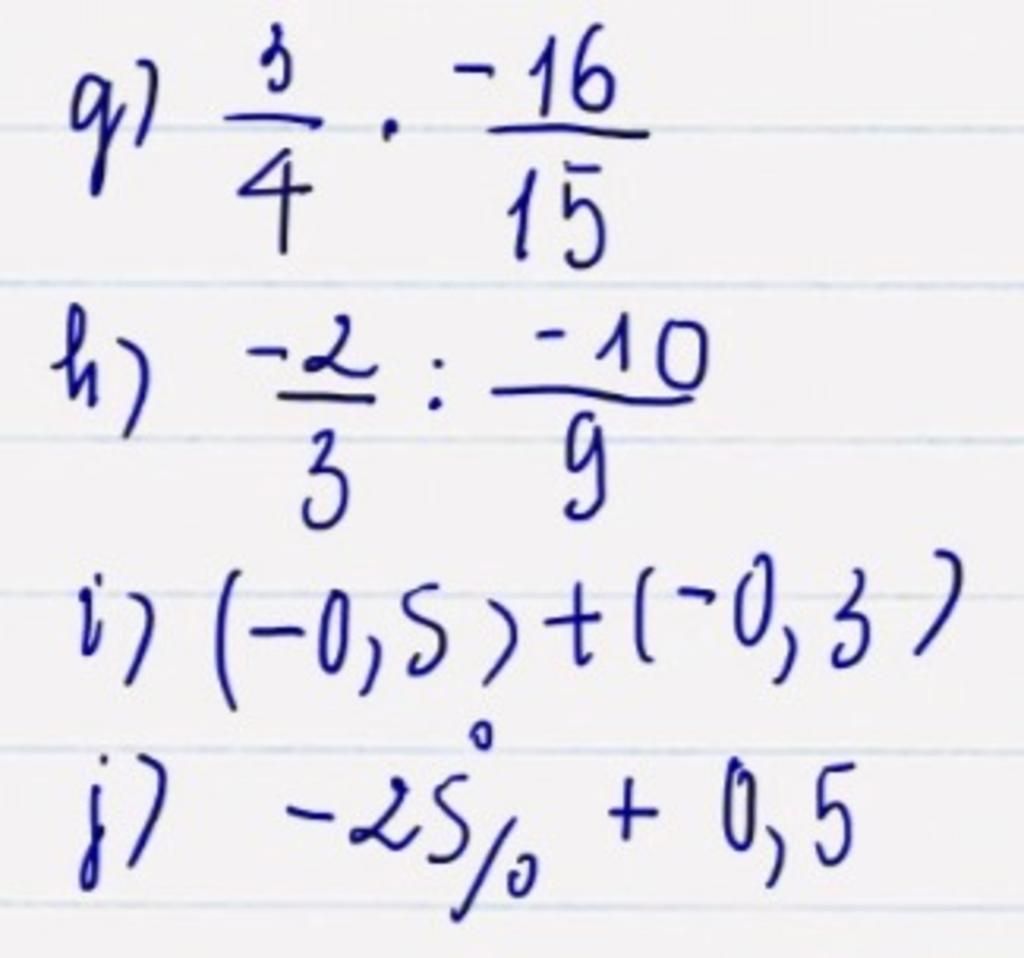 g) 3/4 . -16/15
h) -2/3 : -10/9
i) (-0,5) + (-0,3)
j) -25% + 0,5